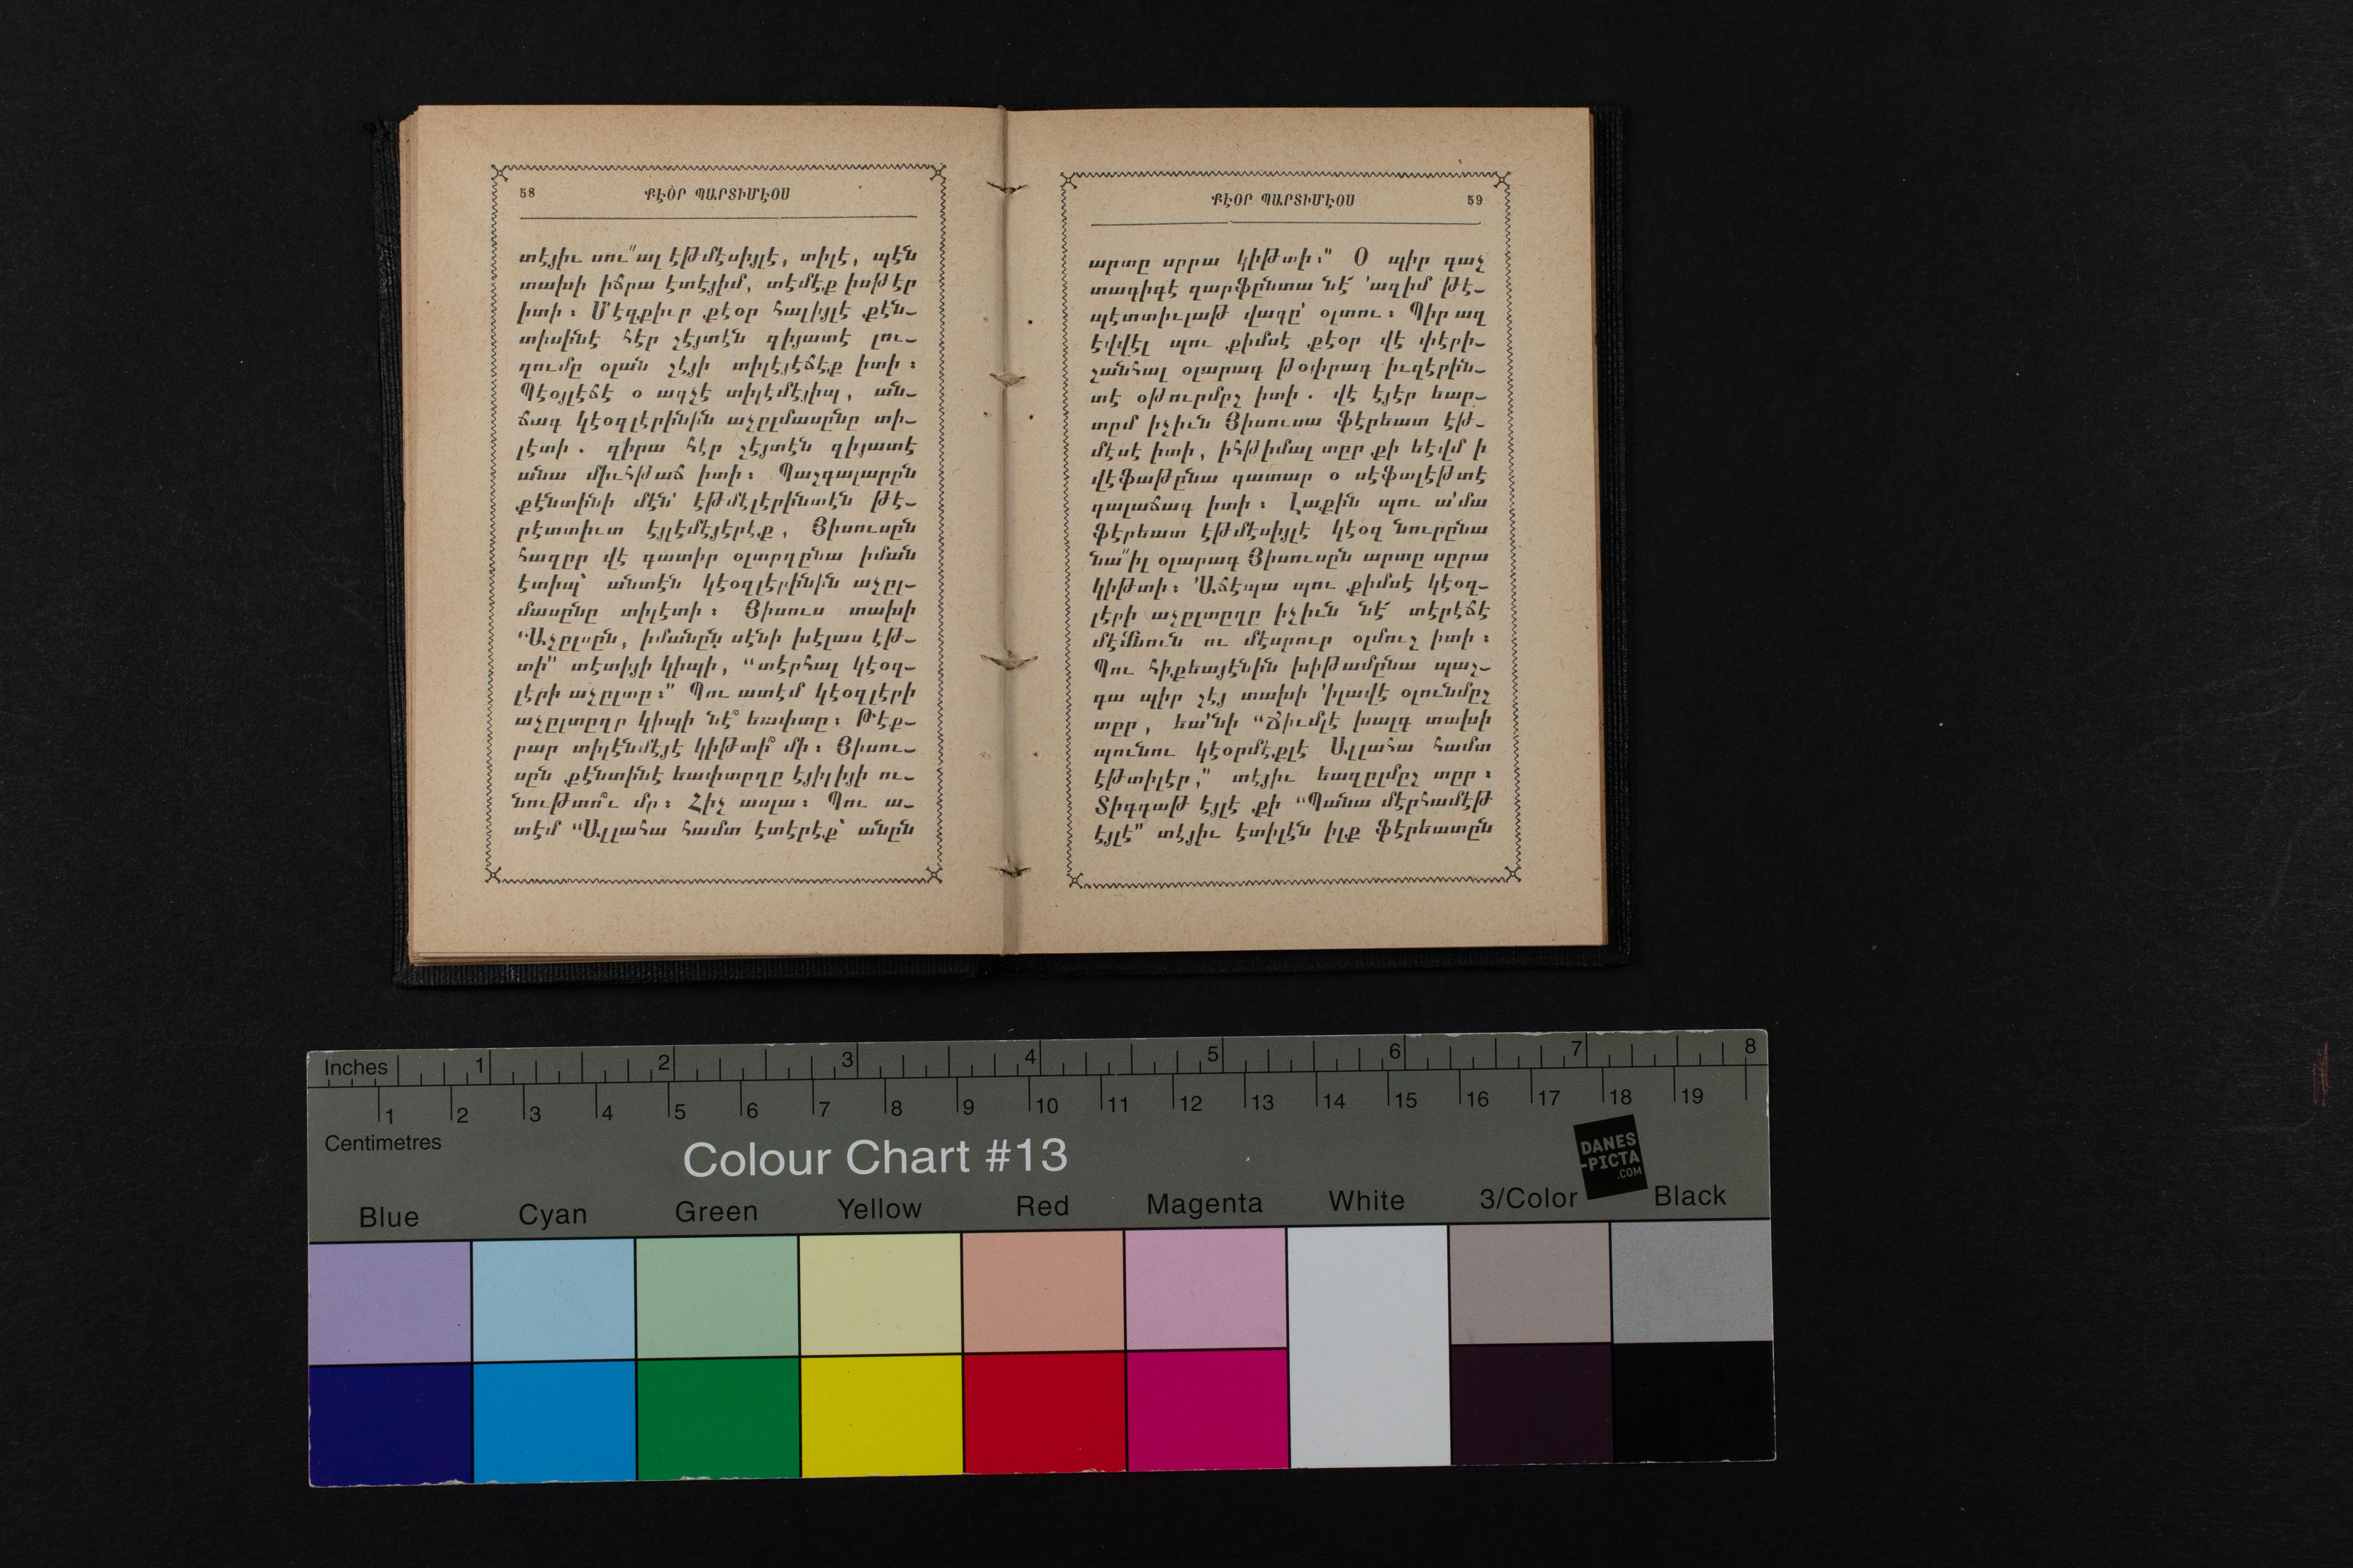 58 ՔԷՕՐ ՊԱՐՏԻՄԷՕՍ
տէյիւ սու՚՚ալ էթմէսիյլէ, տիլէ, պէն
տախի իճրա էտէյիմ, տէմէք իսթէր
իտի։ Մ՚էզքիւր քէօր հալիյլէ քէն–
տիսինէ հէր շէյտէն զիյատէ լու–
զումը օլան շէյի տիլէյէճէք իտի։
Պէօյլէճէ օ ագչէ տիլէմէյիպ, ան–
ճագ կէօզլէրինին աչըլմասընը տի–
լէտի. զիրա հէր շէյտէն զիյատէ
անա միւհթաճ իտի։ Պաշգալարըն
քէնտինի մէն՚ էթմէլէրինտէն թէ–
րէտտիւտ էյլէմէյէրէք, Յիսուսըն
հազըր վէ գատիր օլտըղընա իման
էտիպ՝ անտէն կէօզլէրինին աչըլ–
մասընը տիլէտի։ Յիսուս տախի
“Աչըլսըն, իմանըն սէնի խէլաս էթ–
տի” տէտիյի կիպի, “տէրհալ կէօզ–
լէրի աչըլտը։” Պու ատէմ կէօզլէրի
աչըլտըղը կիպի նէ՞ եափտը։ Թէք–
րար տիլէնմէյէ կիթտի՞ մի։ Յիսու–
սըն քէնտինէ եափտըղը էյիլիյի ու–
նութտո՞ւ մը։ Հիչ ասլա։ Պու ա–
տէմ “Ալլահա համտ էտէրէք՝ անըն
ՔԷՕՐ ՊԱՐՏԻՄԷՕՍ 59
արտը սըրա կիթտի։” Օ պիր գաչ
տագիգէ զարֆընտա նէ՜ ՚ազիմ թէ–
պէտտիւլաթ վագը՚ օլտու։ Պիր ազ
էվվէլ պու քիմսէ քէօր վէ փէրի–
շանհալ օլարագ թօփրագ իւզէրին–
տէ օթուրմըշ իտի. վէ էյէր եար–
տըմ իչիւն Յիսուսա ֆէրեատ էթ–
մէսէ իտի, իհթիմալ տըր քի եէվմ ի
վէֆաթընա գատար օ սէֆալէթտէ
գալաճագ իտի։ Լաքին պու ա՚մա
ֆէրեատ էթմէսիյլէ կէօզ նուրընա
նա՚՚իլ օլարագ Յիսուսըն արտը սըրա
կիթտի։ ՚Աճէպա պու քիմսէ կէօզ–
լէրի աչըլտըղը իչիւն նէ՜ տէրէճէ
մէմնուն ու մէսրուր օլմուշ իտի։
Պու հիքեայէնին խիթամընա պաշ–
գա պիր շէյ տախի ՚իլավէ օլունմըշ
տըր, եա՚նի “Ճիւմլէ խալգ տախի
պունու կէօրմէքլէ Ալլահա համտ
էթտիլէր,” տէյիւ եազըլմըշ տըր։
Տիգգաթ էյլէ քի “Պանա մէրհամէթ
էյլէ” տէյիւ էտիլէն իլք ֆէրեատըն
Inches 1 2 3 4 5 6 7 8
1 2 3 4 5 6 7 8 9 10 11 12 13 14 15 16 17 18 19
Centimetres
Colour Chart #13
DANES
-PICTA
.COM
Blue Cyan Green Yellow Red Magenta White 3/Color Black